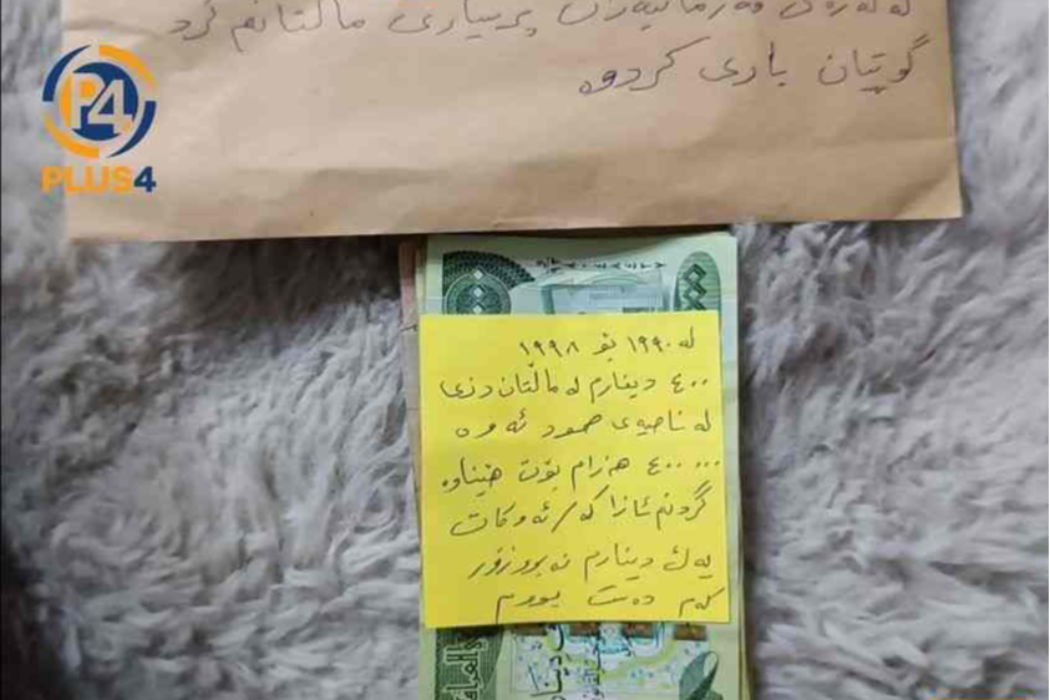 پرسیاری ماڵتانم کرد
گوتیان باری کردوە
P4
PLUS4
لە ١٩٩٠ بۆ ١٩٩٨
٤٠٠ دینارم لە ماڵتان دزی
لە ناحیەی
٤٠٠٠٠٠ هەزام بۆت هێناوە
گردنم ئازا کە / ئەو کات
یەك دینارم نەبوو زۆر
کەم دەست بووم